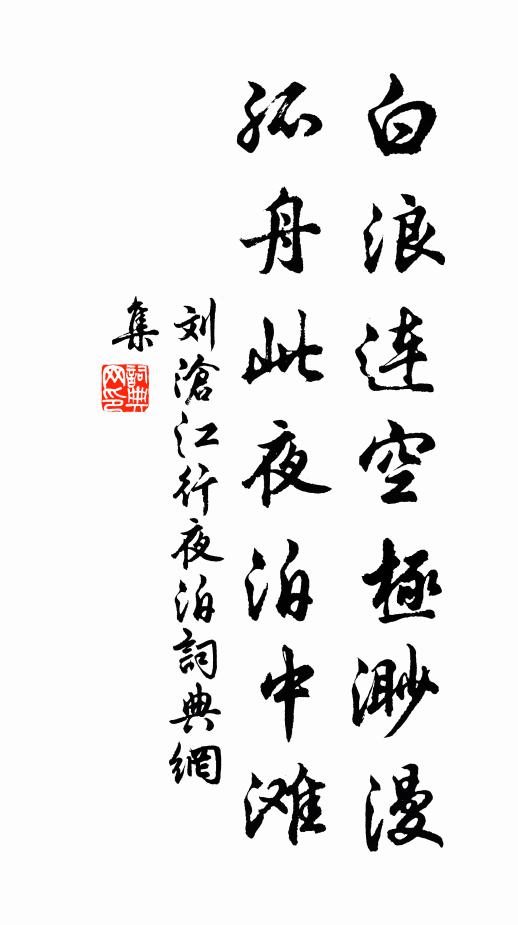 白浪连空極渺漫
孤舟此夜泊中滩
刘滄江行夜泊詞典網
集
詞典网印